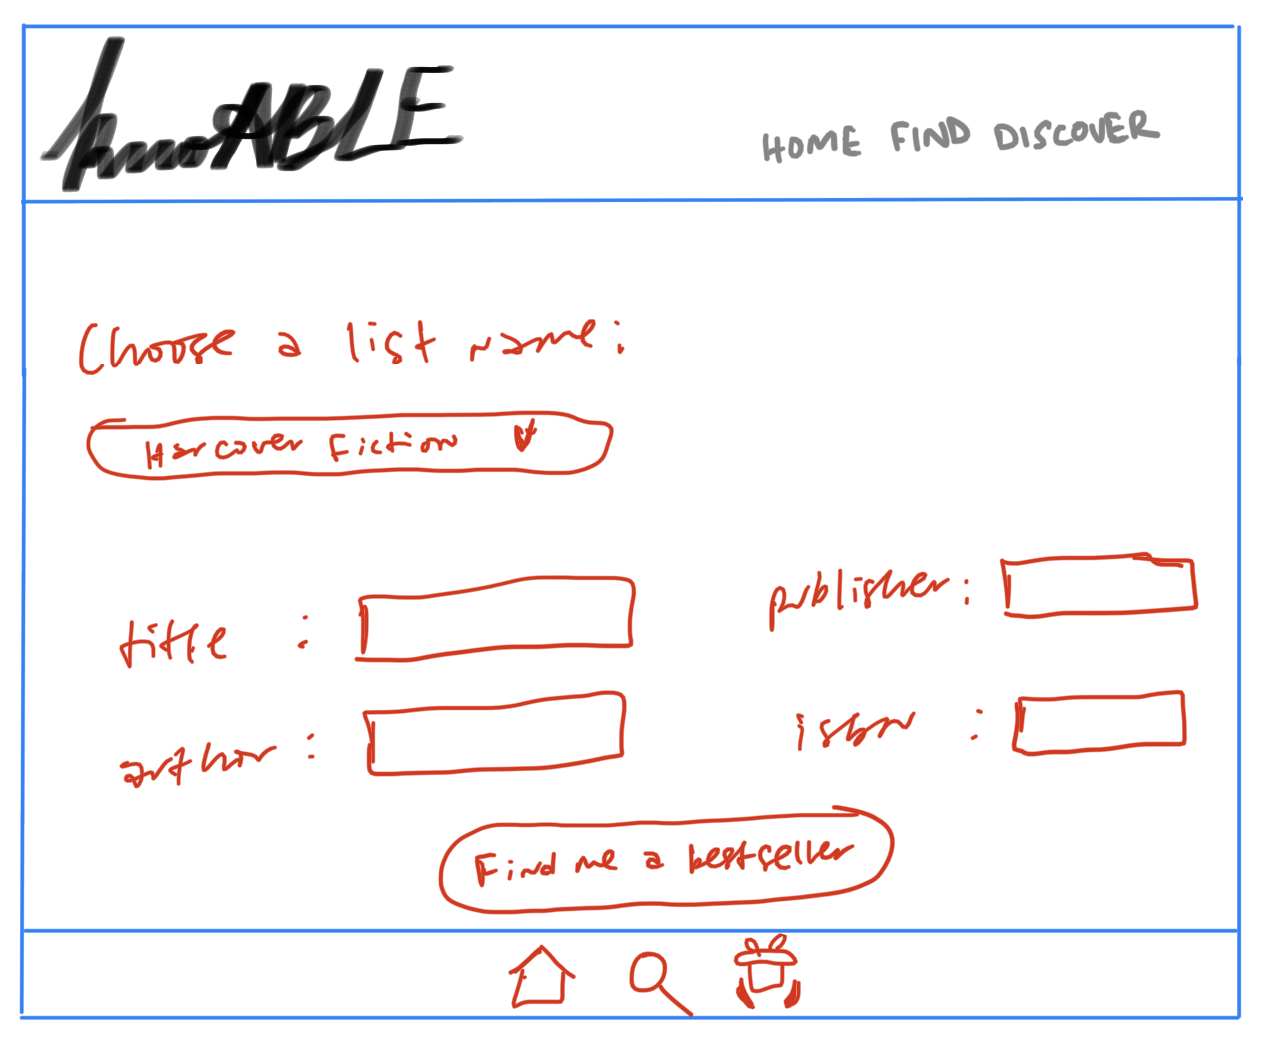 ABLE
HOME FIND DISCOVER
Choose a list name:
Harcover Fiction
title :
publisher:
author:
isbn :
Find me a bestseller